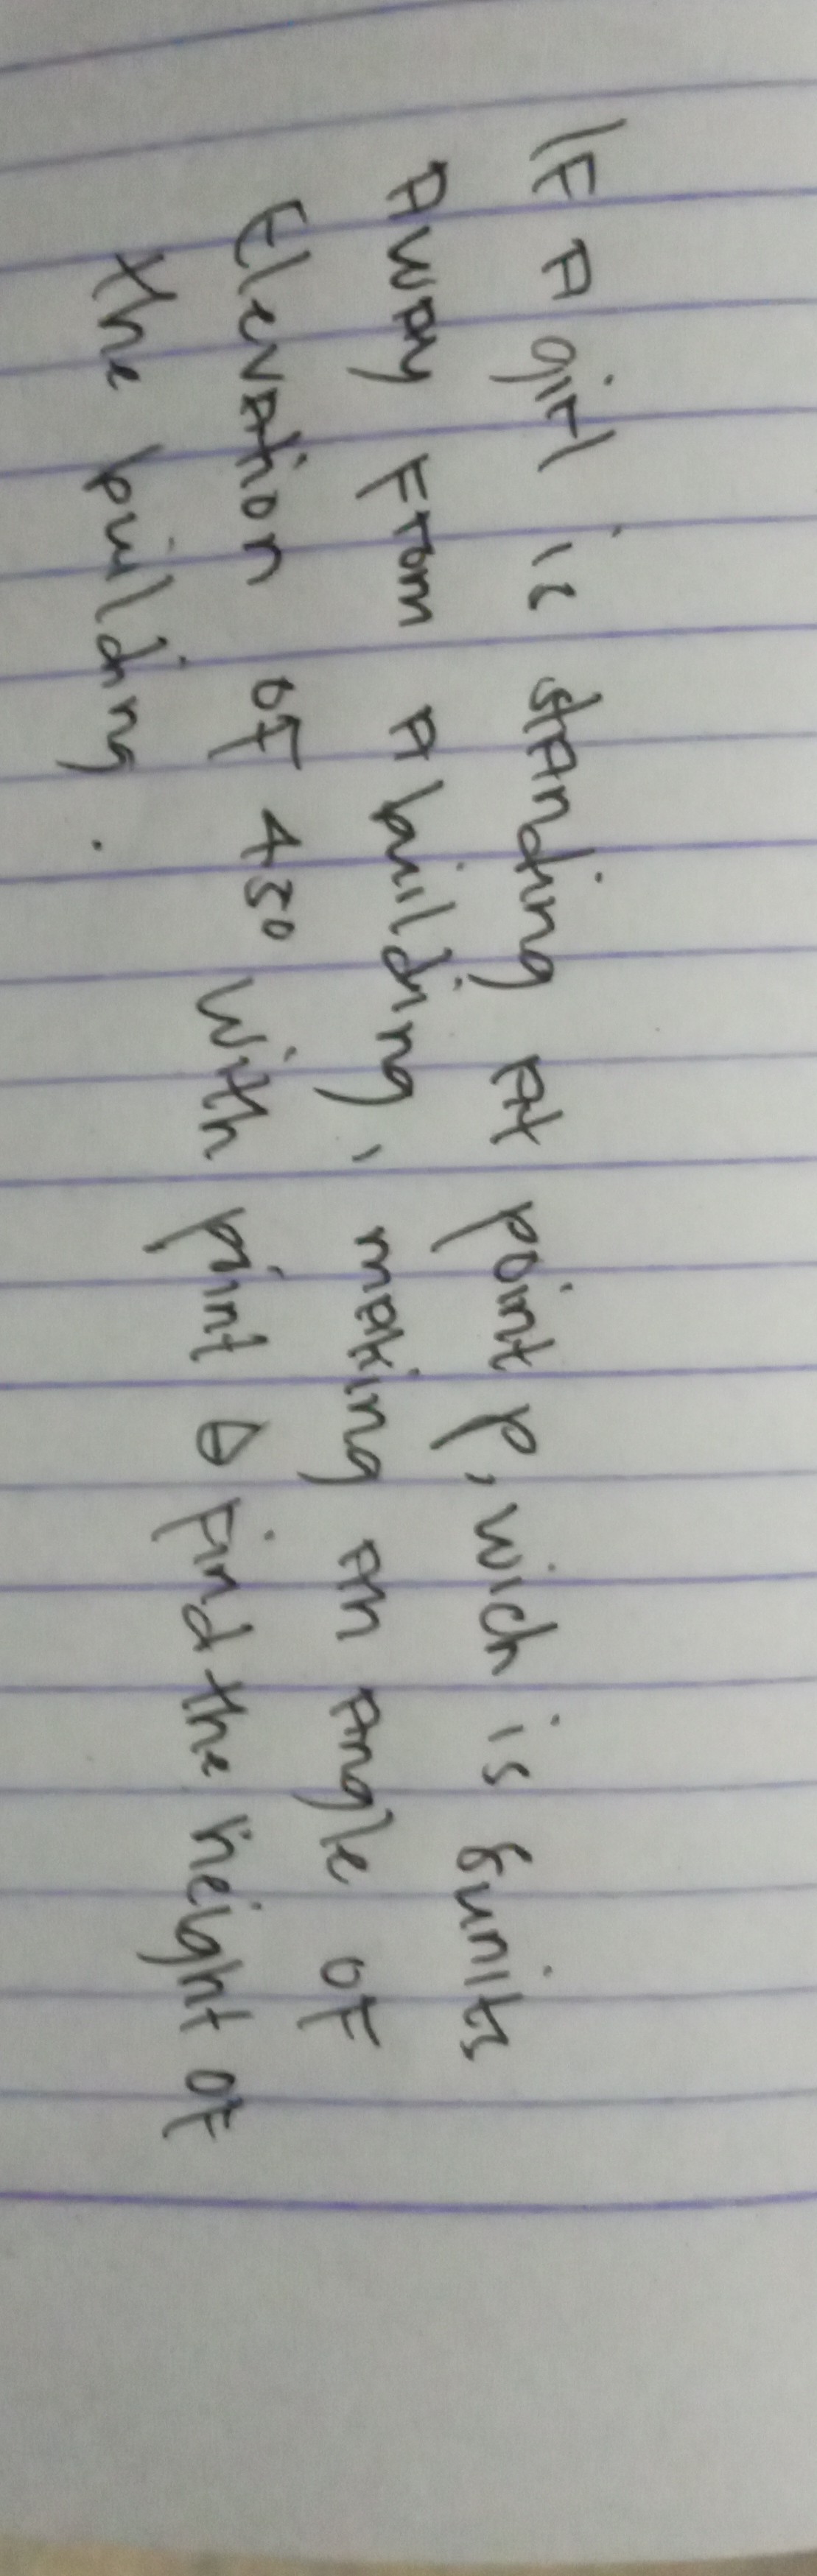 IF A girl is standing At point P, wich is 8units
Away From A building, making An Angle OF
Elevation OF 45° with piint Q Find the height OF
the building.